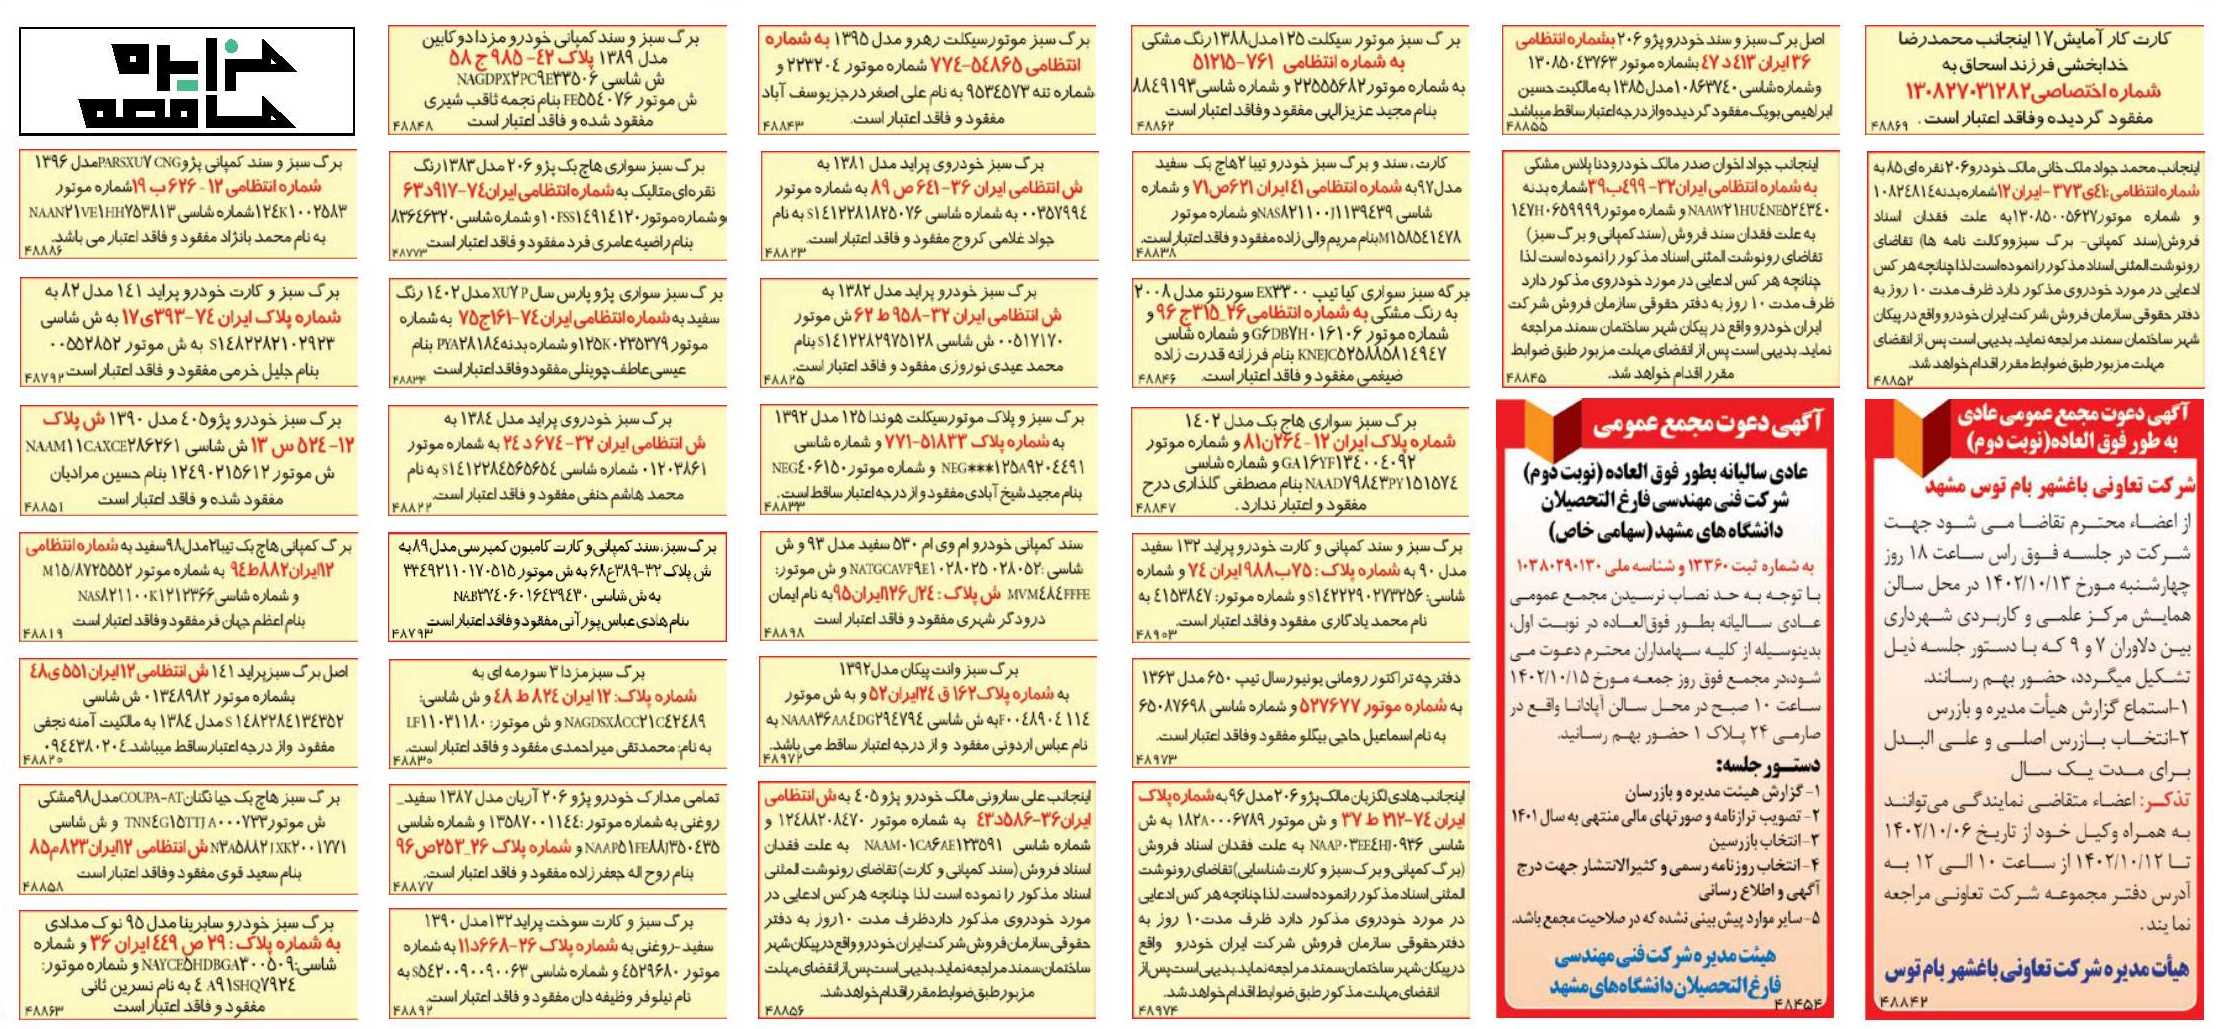 کارت کار آمایش ۱۷ اینجانب محمدرضا
خدابخشی فرزند اسحاق به
شماره اختصاصی ۱۳۰۸۲۷۰۳۱۲۸۲
مفقود گردیده وفاقد اعتبار است .
۴۸۸۶۹
اینجانب محمد جواد ملک خانی مالک خودرو۲۰۶ نقره ای ۸۵ به
شماره انتظامی:۴۱ی۳۷۳ -ایران۱۲شماره بدنه۱۰۸۲۴۸۱۴
و شماره موتور۱۳۰۸۵۰۰۵۶۲۷به علت فقدان اسناد
فروش(سند کمپانی- برگ سبزووکالت نامه ها) تقاضای
رونوشت المثنی اسناد مذکور رانموده است لذا چنانچه هر کس
ادعایی در مورد خودروی مذکور دارد ظرف مدت ۱۰ روز به
دفتر حقوقی سازمان فروش شرکت ایران خودرو واقع در پیکان
شهر ساختمان سمند مراجعه نماید. بدیهی است پس از انقضای
مهلت مزبور طبق ضوابط مقرر اقدام خواهد شد.
۴۸۸۵۲
آگهی دعوت مجمع عمومی عادی
به طور فوق العاده(نوبت دوم)
شرکت تعاونی باغشهر بام توس مشهد
از اعضاء محترم تقاضا می شود جهت
شرکت در جلسه فوق راس ساعت ۱۸ روز
چهارشنبه مورخ ۱۴۰۲/۱۰/۱۳ در محل سالن
همایش مرکز علمی و کاربردی شهرداری
بین دلاوران ۷ و ۹ که با دستور جلسه ذیل
تشکیل میگردد، حضور بهم رسانند.
۱-استماع گزارش هیأت مدیره و بازرس
۲-انتخاب بازرس اصلی و علی البدل
برای مدت یک سال
تذکر: اعضاء متقاضی نمایندگی می‌توانند
به همراه وکیل خود از تاریخ ۱۴۰۲/۱۰/۰۶
تا ۱۴۰۲/۱۰/۱۲ از ساعت ۱۰ الی ۱۲ به
آدرس دفتر مجموعه شرکت تعاونی مراجعه
نمایند.
هیأت مدیره شرکت تعاونی باغشهر بام توس
۴۸۸۴۲
اصل برگ سبز و سند خودرو پژو ۲۰۶ بشماره انتظامی
۳۶ ایران ۴۱۳ د ۴۷ بشماره موتور ۱۳۰۸۵۰۴۳۷۶۳
وشماره شاسی ۱۰۸۶۳۷۴۰مدل ۱۳۸۵ به مالکیت حسین
ابراهیمی بویک مفقود گردیده واز درجه اعتبار ساقط میباشد.
۴۸۸۵۵
اینجانب جواد اخوان صدر مالک خودرودنا پلاس مشکی
به شماره انتظامی ایران۳۲- ۴۹۹ب۳۹شماره بدنه
NAAW۲۱HU۴NE۵۲۴۳۴۰ و شماره موتور۱۴۷H۰۶۵۹۹۹۹
به علت فقدان سند فروش (سند کمپانی و برگ سبز)
تقاضای رونوشت المثنی اسناد مذکور رانموده است لذا
چنانچه هر کس ادعایی در مورد خودروی مذکور دارد
ظرف مدت ۱۰ روز به دفتر حقوقی سازمان فروش شرکت
ایران خودرو واقع در پیکان شهر ساختمان سمند مراجعه
نماید. بدیهی است پس از انقضای مهلت مزبور طبق ضوابط
مقرر اقدام خواهد شد.
۴۸۸۴۵
آگهی دعوت مجمع عمومی
عادی سالیانه بطور فوق العاده (نوبت دوم)
شرکت فنی مهندسی فارغ التحصیلان
دانشگاه های مشهد (سهامی خاص)
به شماره ثبت ۱۳۳۶۰ و شناسه ملی ۱۰۳۸۰۲۹۰۱۳۰
با توجه به حد نصاب نرسیدن مجمع عمومی
عادی سالیانه بطور فوق‌العاده در نوبت اول،
بدینوسیله از کلیه سهامداران محترم دعوت می
شود،در مجمع فوق روز جمعه مورخ ۱۴۰۲/۱۰/۱۵
ساعت ۱۰ صبح در محل سالن آپادانا واقع در
صارمی ۲۴ پلاک ۱ حضور بهم رسانید.
دستور جلسه:
۱-گزارش هیئت مدیره و بازرسان
۲- تصویب ترازنامه و صورتهای مالی منتهی به سال ۱۴۰۱
۳-انتخاب بازرسین
۴- انتخاب روزنامه رسمی و کثیرالانتشار جهت درج
آگهی و اطلاع رسانی
۵-سایر موارد پیش بینی نشده که در صلاحیت مجمع باشد.
هیئت مدیره شرکت فنی مهندسی
فارغ التحصیلان دانشگاه های مشهد
۴۸۴۵۴
برگ سبز موتور سیکلت ۱۲۵مدل۱۳۸۸رنگ مشکی
به شماره انتظامی ۷۶۱-۵۱۲۱۵
به شماره موتور۲۲۵۵۵۶۸۲ و شماره شاسی۸۸۴۹۱۹۳
بنام مجید عزیز الهی مفقود و فاقد اعتبار است
۴۸۸۶۲
کارت، سند و برگ سبز خودرو تیبا ۲هاچ بک سفید
مدل۹۷به شماره انتظامی ۴۱ایران ۶۲۱ص۷۱ و شماره
شاسی NAS۸۲۱۱۰۰J۱۱۳۹۴۳۹و شماره موتور
M۱۵۸۵۴۱۴۷۸بنام مریم والی زاده مفقود و فاقد اعتبار است.
۴۸۸۳۸
برگه سبز سواری کیا تیپ EX۳۳۰۰ سورنتو مدل ۲۰۰۸
به رنگ مشکی به شماره انتظامی۲۶_۳۱۵ج ۹۶ و
شماره موتور G۶DB۷H۰۱۶۱۰۶ و شماره شاسی
KNEJC۵۲۵۸۸۵۸۱۴۹۴۷ بنام فرزانه قدرت زاده
ضیغمی مفقود و فاقد اعتبار است.
۴۸۸۴۶
برگ سبز سواری هاچ بک مدل ۱۴۰۲
شماره پلاک ایران ۱۲-۲۶۴ن۸۱ و شماره موتور
GA۱۶YF۱۳۴۰۰۴۰۹۲ و شماره شاسی
NAAD۷۹۸۴۳PY۱۵۱۵۷۴ بنام مصطفی گلذاری درح
مفقود و اعتبار ندارد .
۴۸۸۴۷
برگ سبز و سند کمپانی و کارت خودرو پراید ۱۳۲ سفید
مدل ۹۰ به شماره پلاک : ۷۵ب۹۸۸ ایران ۷۴ و شماره
شاسی: S۱۴۲۲۲۹۰۲۷۳۲۵۶ و شماره موتور: ۴۱۵۳۸۴۷ به
نام محمد یادگاری مفقود وفاقد اعتبار است.
۴۸۹۰۳
دفترچه تراکتور رومانی یونیورسال تیپ ۶۵۰ مدل ۱۳۶۲
به شماره موتور ۵۲۷۶۷۷ و شماره شاسی ۶۵۰۸۷۶۹۸
به نام اسماعیل حاجی بیگلو مفقود وفاقد اعتبار است.
۴۸۹۷۳
اینجانب هادی لگزیان مالک پژو ۲۰۶مدل۹۶به شماره پلاک
ایران ۷۴-۲۱۲ ط ۳۷ و ش موتور ۱۸۲A۰۰۰۶۷۸۹ به ش
شاسی NAAP۰۳EE۴HJ۰۹۳۶ به علت فقدان اسناد فروش
(برگ کمپانی و برگ سبز و کارت شناسایی) تقاضای رونوشت
المثنی اسناد مذکور رانموده است. لذا چنانچه هر کس ادعایی
در مورد خودروی مذکور دارد ظرف مدت۱۰ روز به
دفترحقوقی سازمان فروش شرکت ایران خودرو واقع
درپیکان شهر ساختمان سمند مراجعه نماید.بدیهی است پس از
انقضای مهلت مذکور طبق ضوابط اقدام خواهد شد.
۴۸۹۷۴
برگ سبز موتورسیکلت رهرو مدل ۱۳۹۵ به شماره
انتظامی ۵۴۸۶۵-۷۷۴ شماره موتور ۲۲۳۲۰۴ و
شماره تنه ۹۵۳۴۵۷۳ به نام علی اصغر درجزیوسف آباد
مفقود و فاقد اعتبار است.
۴۸۸۴۳
برگ سبز خودروی پراید مدل ۱۳۸۱ به
ش انتظامی ایران ۳۶-۶۴۱ ص ۸۹ به شماره موتور
۰۰۳۵۷۹۹۴ به شماره شاسی S۱۴۱۲۲۸۱۸۲۵۰۷۶ به نام
جواد غلامی کروج مفقود و فاقد اعتبار است.
۴۸۸۲۳
برگ سبز خودرو پراید مدل ۱۳۸۲ به
ش انتظامی ایران ۳۲-۹۵۸ ط ۶۲ ش موتور
۰۰۵۱۷۱۷۰ ش شاسی S۱۴۱۲۲۸۲۹۷۵۱۲۸ بنام
محمد عیدی نوروزی مفقود و فاقد اعتبار است.
۴۸۸۲۵
برگ سبز و پلاک موتورسیکلت هوندا ۱۲۵ مدل ۱۳۹۲
به شماره پلاک ۵۱۸۳۳-۷۷۱ و شماره شاسی
NEG***۱۲۵A۹۲۰۴۴۹۱ و شماره موتور NEG۴۰۶۱۵۰
بنام مجید شیخ آبادی مفقود و از درجه اعتبار ساقط است.
۴۸۸۳۳
سند کمپانی خودرو ام وی ام ۵۳۰ سفید مدل ۹۳ و ش
شاسی :NATGCAVF۹E۱۰۲۸۰۲۵ ۰۲۸۰۵۲ و ش موتور:
MVM۴۸۴FFFE ش پلاک : ۲۴ل۱۲۶ایران۹۵به نام ایمان
درودگر شهری مفقود و فاقد اعتبار است
۴۸۸۹۸
برگ سبز وانت پیکان مدل۱۳۹۲
به شماره پلاک۱۶۲ ق ۲۴ایران۵۲ و به ش موتور
۱۱۴F۰۰۴۸۹۰۴به ش شاسی NAAA۳۶AA۴DG۲۹۴۷۹۴ به
نام عباس اردونی مفقود و از درجه اعتبار ساقط می باشد.
۴۸۹۷۲
اینجانب علی سارونی مالک خودرو پژو ۴۰۵ به ش انتظامی
ایران۳۶-۵۸۶د۴۳ به شماره موتور ۱۲۴۸۸۲۰۸۴۷۰ و
شماره شاسی NAAM۰۱CA۶AE۱۲۳۵۹۱ به علت فقدان
اسناد فروش (سند کمپانی و کارت) تقاضای رونوشت المثنی
اسناد مذکور را نموده است لذا چنانچه هر کس ادعایی در
مورد خودروی مذکور داردظرف مدت ۱۰روز به دفتر
حقوقی سازمان فروش شرکت ایران خودرو واقع در پیکان شهر
ساختمان سمند مراجعه نماید.بدیهی است پس از انقضای مهلت
مزبور طبق ضوابط مقرر اقدام خواهد شد.
۴۸۸۵۶
برگ سبز و سند کمپانی خودرو مزدا دو کابین
مدل ۱۳۸۹ پلاک ۴۲- ۹۸۵ ج ۵۸
ش شاسی NAGDPX۲PC۹E۳۳۵۰۶
ش موتور FE۵۵۴۰۷۶ بنام نجمه ثاقب شیری
مفقود شده و فاقد اعتبار است
۴۸۸۴۸
برگ سبز سواری هاچ بک پژو ۲۰۶ مدل ۱۳۸۳ رنگ
نقره ای متالیک به شماره انتظامی ایران۷۴-۹۱۷د۶۳
و شماره موتور۱۰FSS۱۴۹۱۴۱۲۰و شماره شاسی۸۳۶۴۶۳۲۰
بنام راضیه عامری فرد مفقود و فاقد اعتبار است
۴۸۷۷۳
برگ سبز سواری پژو پارس سال XU۷P مدل ۱۴۰۲ رنگ
سفید به شماره انتظامی ایران۷۴-۱۶۱ج۷۵ به شماره
موتور ۱۲۵K۰۲۳۵۳۷۹و شماره بدنه PYA۲۸۱۸۴ بنام
عیسی عاطف چوپنلی مفقود وفاقد اعتبار است
۴۸۸۳۴
برگ سبز خودروی پراید مدل ۱۳۸۴ به
ش انتظامی ایران ۳۲-۶۷۴ د ۲۴ به شماره موتور
۰۱۲۰۳۸۶۱ شماره شاسی S۱۴۱۲۲۸۴۵۶۵۶۵۴ به نام
محمد هاشم حنفی مفقود و فاقد اعتبار است
۴۸۸۲۲
برگ سبز، سند کمپانی و کارت کامیون کمپرسی مدل ۸۹ به
ش پلاک ۳۲-۳۸۹ع۶۸ به ش موتور ۳۳۴۹۲۱۱۰۱۷۰۵۱۵
به ش شاسی NAB۳۷۴۰۶۰۱۶۴۳۹۴۳۰
بنام هادی عباس پور آنی مفقود و فاقد اعتبار است
۴۸۷۹۳
برگ سبز مزدا ۳ سورمه ای به
شماره پلاک: ۱۲ ایران ۸۲۴ ط ۴۸ و ش شاسی:
NAGDSX۸CC۲۱C۴۲۴۸۹ و ش موتور: LF۱۱۰۳۱۱۸۰
به نام: محمدتقی میراحمدی مفقود و فاقد اعتبار است.
۴۸۸۳۰
تمامی مدارک خودرو پژو ۲۰۶ آریان مدل ۱۳۸۷ سفید_
روغنی به شماره موتور :۱۳۵۸۷۰۰۱۱۴۴ و شماره شاسی
NAAP۵۱FE۸۸J۳۵۰۴۳۵ و شماره پلاک ۲۶_۲۵۳ص۹۶
بنام روح اله جعفرزاده مفقود و فاقد اعتبار است
۴۸۸۷۷
برگ سبز و کارت سوخت پراید۱۳۲مدل ۱۳۹۰
سفید-روغنی به شماره پلاک ۲۶-۶۶۸د۱۱به شماره
موتور ۴۵۲۹۶۸۰ و شماره شاسی S۵۴۲۰۰۹۰۰۹۰۰۶۳ به
نام نیلوفر وظیفه دان مفقود و فاقد اعتبار است
۴۸۸۹۲
مزایده
مناقصه
برگ سبز و سند کمپانی پژو PARSXU۷ CNGمدل ۱۳۹۶
شماره انتظامی ۱۲ - ۶۲۶ ب ۱۹شماره موتور
۱۲۴K۱۰۰۲۵۸۳شماره شاسی NAAN۲۱VE۱HH۷۵۳۸۱۳
به نام محمد بانژاد مفقود و فاقد اعتبار می باشد.
۴۸۸۸۶
برگ سبز و کارت خودرو پراید ۱۴۱ مدل ۸۲ به
شماره پلاک ایران ۷۴-۳۹۳ی۱۷ به ش شاسی
S۱۴۸۲۲۸۲۱۰۲۹۲۳ به ش موتور ۰۰۵۵۲۸۵۲
بنام جلیل خرمی مفقود و فاقد اعتبار است
۴۸۷۹۲
برگ سبز خودرو پژو۴۰۵ مدل ۱۳۹۰ ش پلاک
۱۲-۵۲۴ س ۱۳ ش شاسی NAAM۱۱CAXCE۲۸۶۲۶۱
ش موتور ۱۲۴۹۰۲۱۵۶۱۲ بنام حسین مرادیان
مفقود شده و فاقد اعتبار است
۴۸۸۵۱
برگ کمپانی هاچ بک تیبا۲مدل۹۸سفید به شماره انتظامی
۱۲ایران۸۸۲ط۹۴ به شماره موتور M۱۵/۸۷۲۵۵۵۲
و شماره شاسی NAS۸۲۱۱۰۰K۱۲۱۲۳۶۶
بنام اعظم جهان فر مفقود و فاقد اعتبار است
۴۸۸۱۹
اصل برگ سبز پراید ۱۴۱ ش انتظامی ۱۲ایران ۵۵۱ی۴۸
بشماره موتور ۰۱۳۴۸۹۸۲ ش شاسی
S۱۴۸۲۲۸۴۱۳۴۳۵۲ مدل ۱۳۸۴ به مالکیت آمنه نجفی
مفقود واز درجه اعتبار ساقط میباشد.۰۹۴۴۳۸۰۲۰۴
۴۸۸۲۰
برگ سبز هاچ بک جیا نگنان COUPA-ATمدل۹۸مشکی
ش موتور TNN۴G۱۵TTJA۰۰۰۷۳۳ و ش شاسی
N۲A۵۸۸۲JXK۲۰۰۱۷۷۱ ش انتظامی ۱۲ایران۸۲۳م۸۵
بنام سعید قوی مفقود وفاقد اعتبار است
۴۸۸۵۸
برگ سبز خودرو سابرینا مدل ۹۵ نوک مدادی
به شماره پلاک : ۲۹ ص ۴۴۹ ایران ۳۶ و شماره
شاسی:NAYCE۵HDBGA۳۰۰۵۰۹ و شماره موتور:
۴A۹۱SHQ۷۹۲۴ به نام نسرین ثانی
مفقود و فاقد اعتبار است
۴۸۸۶۳